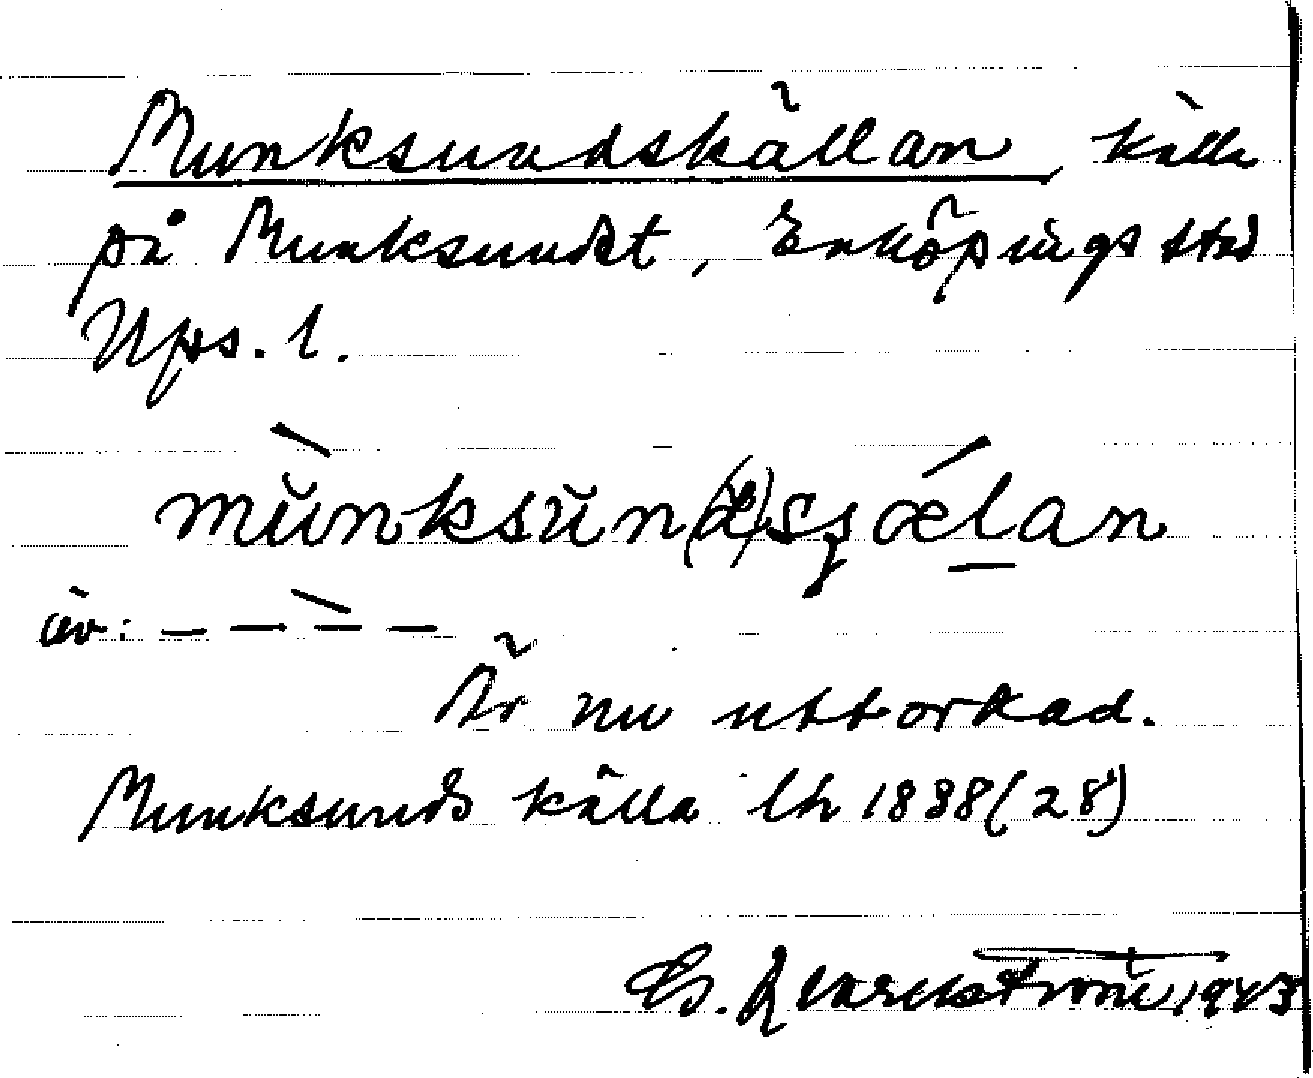 Munksundskällan, källa
på Munksundet, Enköpings stad
Ups. l.
mùnksŭn(d)sȿælan
äv: – – – –
Är nu uttorkad.
Munksunds källa lh 1838 (28)
G. Qvarnström 1943